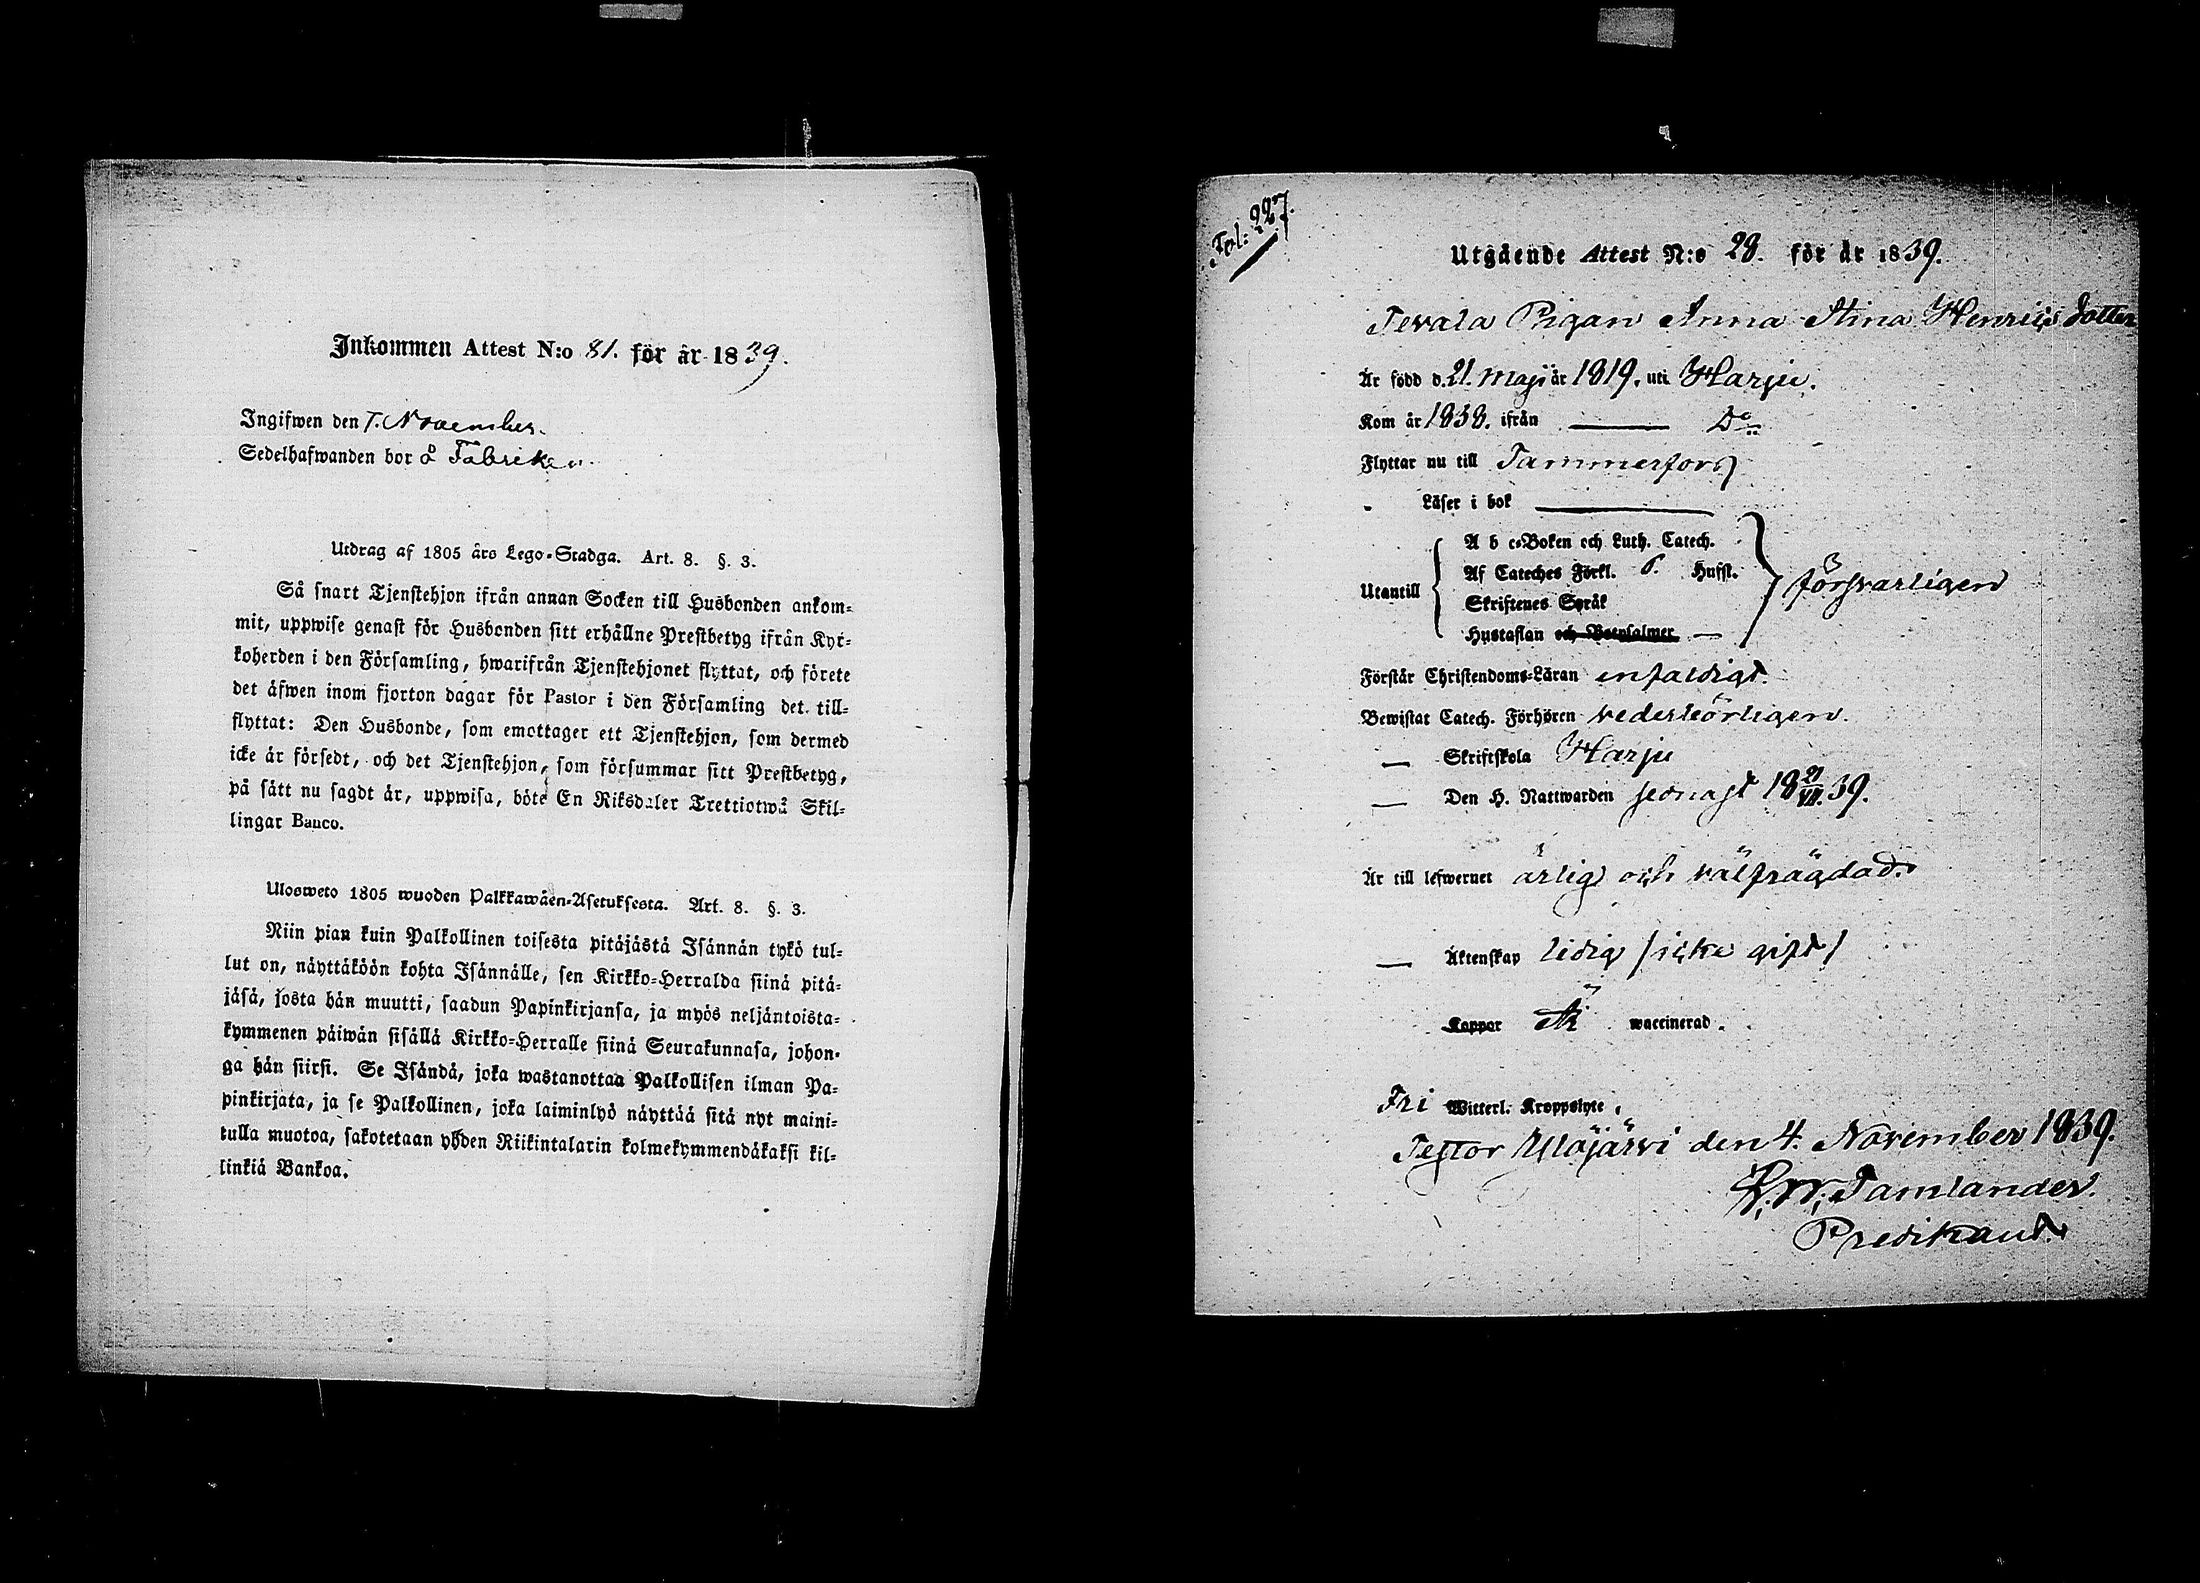 Inkommen Attest N:o 81. för år 1839.
Ingifwen den 7. November.
Sedelhafwanden bor å Fabriken
Utdrag af 1805 års Lego-Stadga. Art. 8. §. 3.
Så snart Tjenstehjon ifrån annan Socken till Husbonden ankom-
mit, uppwise genast för Husbonden sitt erhållne Prestbetyg ifrån Kyr-
koherden i den Församling, hwarifrån Tjenstehjonet flyttat, och förete
det äfwen inom fjorton dagar för Pastor i den Församling det till-
flyttat: Den Husbonde, som emottager ett Tjenstehjon, som dermed
icke är försedt, och det Tjenstehjon, som försummar sitt Prestbetyg,
på sätt nu sagdt är, uppwisa, böte En Riksdaler Trettiotwå Skil-
lingar Banco.
Ulosweto 1805 wuoden Palkkawäen-Asetuksesta. Art. 8. §. 3.
Niin pian kuin Palkollinen toisesta pitäjästä Isännän tykö tul-
lut on, näyttäköön kohta Isännälle, sen Kirkko-Herralda siinä pitä-
jäsä, josta hän muutti, saadun Papinkirjansa, ja myös neljäntoista-
kymmenen päiwän sisällä Kirkko-Herralle siinä Seurakunnasa, johon-
ga hän siirsi. Se Isändä, joka wastanottaa Palkollisen ilman Pa-
pinkirjata, ja se Palkollinen, joka laiminlyö näyttää sitä nyt maini-
tulla muotoa, sakotetaan yhden Riikintalarin kolmekymmendäkaksi kil-
linkiä Bankoa.
Fol: 227.
Utgående Attest N:o 28. för år 1839.
Tevala Pigan Anna Stina Henrics dotter
Är född d. 21. Maji år 1819. uti Harju.
Kom år 1838. ifrån — Do
Flyttar nu till Tammerfors
Läser i bok —
Utantill
A b c-Boken och Luth. Catech.
Af Cateches Förkl. 6. Hufst.
Skriftenes Språk
Hustaflan och Botpsalmer —
försvarligen
Förstår Christendoms-Läran enfaldigt.
Bewistat Catech. Förhören vederbörligen.
— Skriftskola Harju
— Den H. Nattwarden sednast 18 21/VII. 39.
Är till lefwernet ärlig och välfrägdad.
— Äktenskap ledig /icke gift/
Koppor Är waccinerad.
Fri Witterl. Kroppslyte.
Testor Ylöjärvi den 4. November 1839.
K. W. Tamlander.
Predikant.